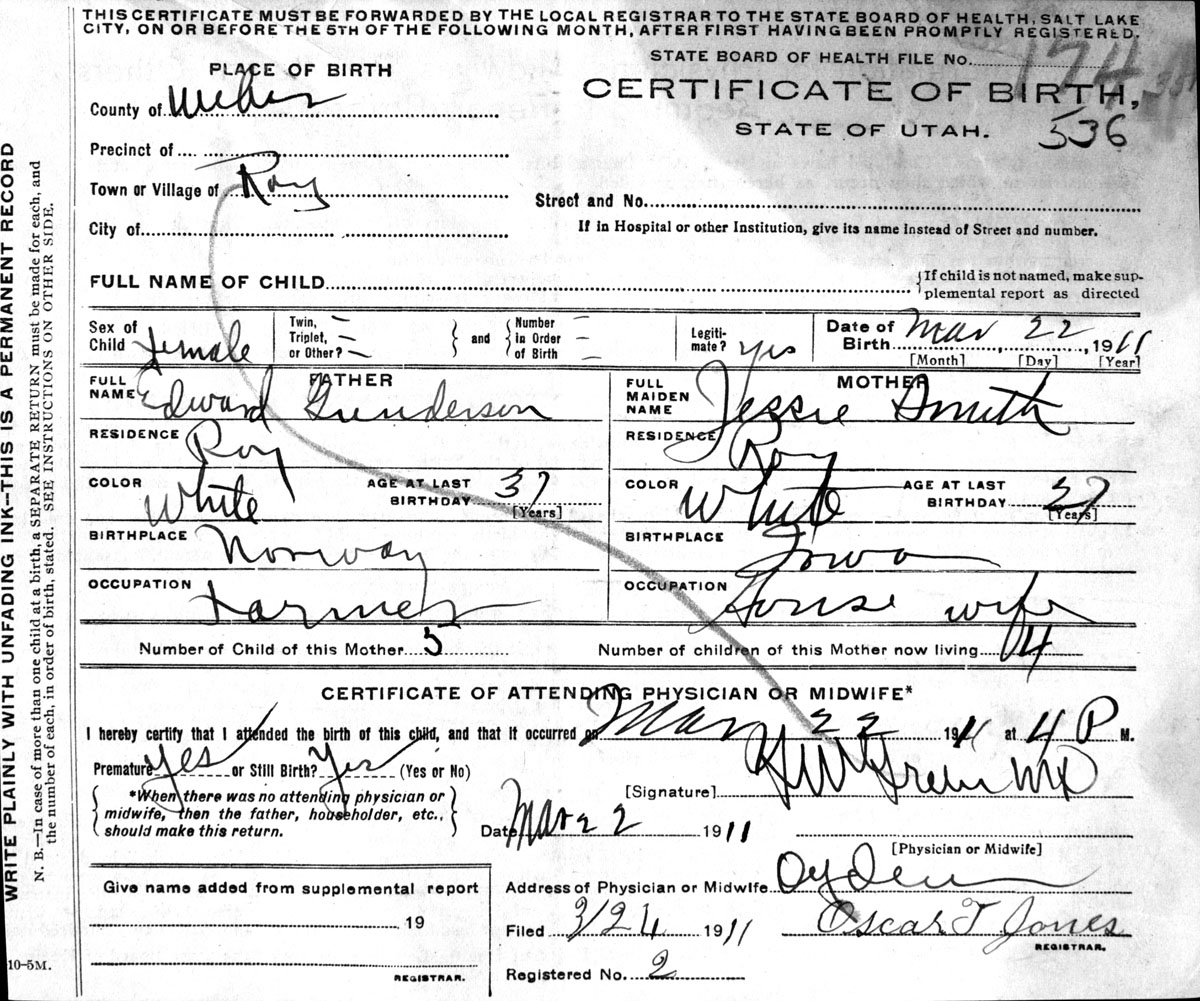 THIS CERTIFICATE MUST BE FORWARDED BY THE LOCAL REGISTRAR TO THE STATE BOARD OF HEALTH, SALT LAKE
CITY, ON OR BEFORE THE 5TH OF THE FOLLOWING MONTH, AFTER FIRST HAVING BEEN PROMPTLY REGISTERED.
STATE BOARD OF HEALTH FILE No. 174
PLACE OF BIRTH
CERTIFICATE OF BIRTH,
County of Weber
STATE OF UTAH. 536
Precinct of
Town or Village of Roy
Street and No.
City of
If in Hospital or other Institution, give its name instead of Street and number.
FULL NAME OF CHILD
{If child is not named, make sup-
plemental report as directed
Sex of Child female
Twin, Triplet, or Other?
and
Number in Order of Birth
Legiti-mate? yes
Date of Birth Mar 22, 1911
[Month] [Day] [Year]
FATHER
FULL NAME Edward Gunderson
MOTHER
FULL MAIDEN NAME Jessie Smith
RESIDENCE Roy
RESIDENCE Roy
COLOR White AGE AT LAST BIRTHDAY 37 [Years]
COLOR White AGE AT LAST BIRTHDAY 37 [Years]
BIRTHPLACE Norway
BIRTHPLACE Iowa
OCCUPATION Farmer
OCCUPATION House wife
Number of Child of this Mother 5
Number of children of this Mother now living 4
CERTIFICATE OF ATTENDING PHYSICIAN OR MIDWIFE*
I hereby certify that I attended the birth of this child, and that it occurred on Mar 22 1911 at 4 P M.
Premature yes or Still Birth? Yes (Yes or No)
*When there was no attending physician or
midwife, then the father, householder, etc.,
should make this return.
[Signature] MD
Date Mar 22 1911
[Physician or Midwife]
Give name added from supplemental report
19
REGISTRAR.
Address of Physician or Midwife Ogden
Filed 3/24 1911 Oscar T Jones
REGISTRAR.
Registered No. 2
10-5M.
WRITE PLAINLY WITH UNFADING INK–THIS IS A PERMANENT RECORD
N. B.—In case of more than one child at a birth, a SEPARATE RETURN must be made for each, and
the number of each, in order of birth, stated. SEE INSTRUCTIONS ON OTHER SIDE.